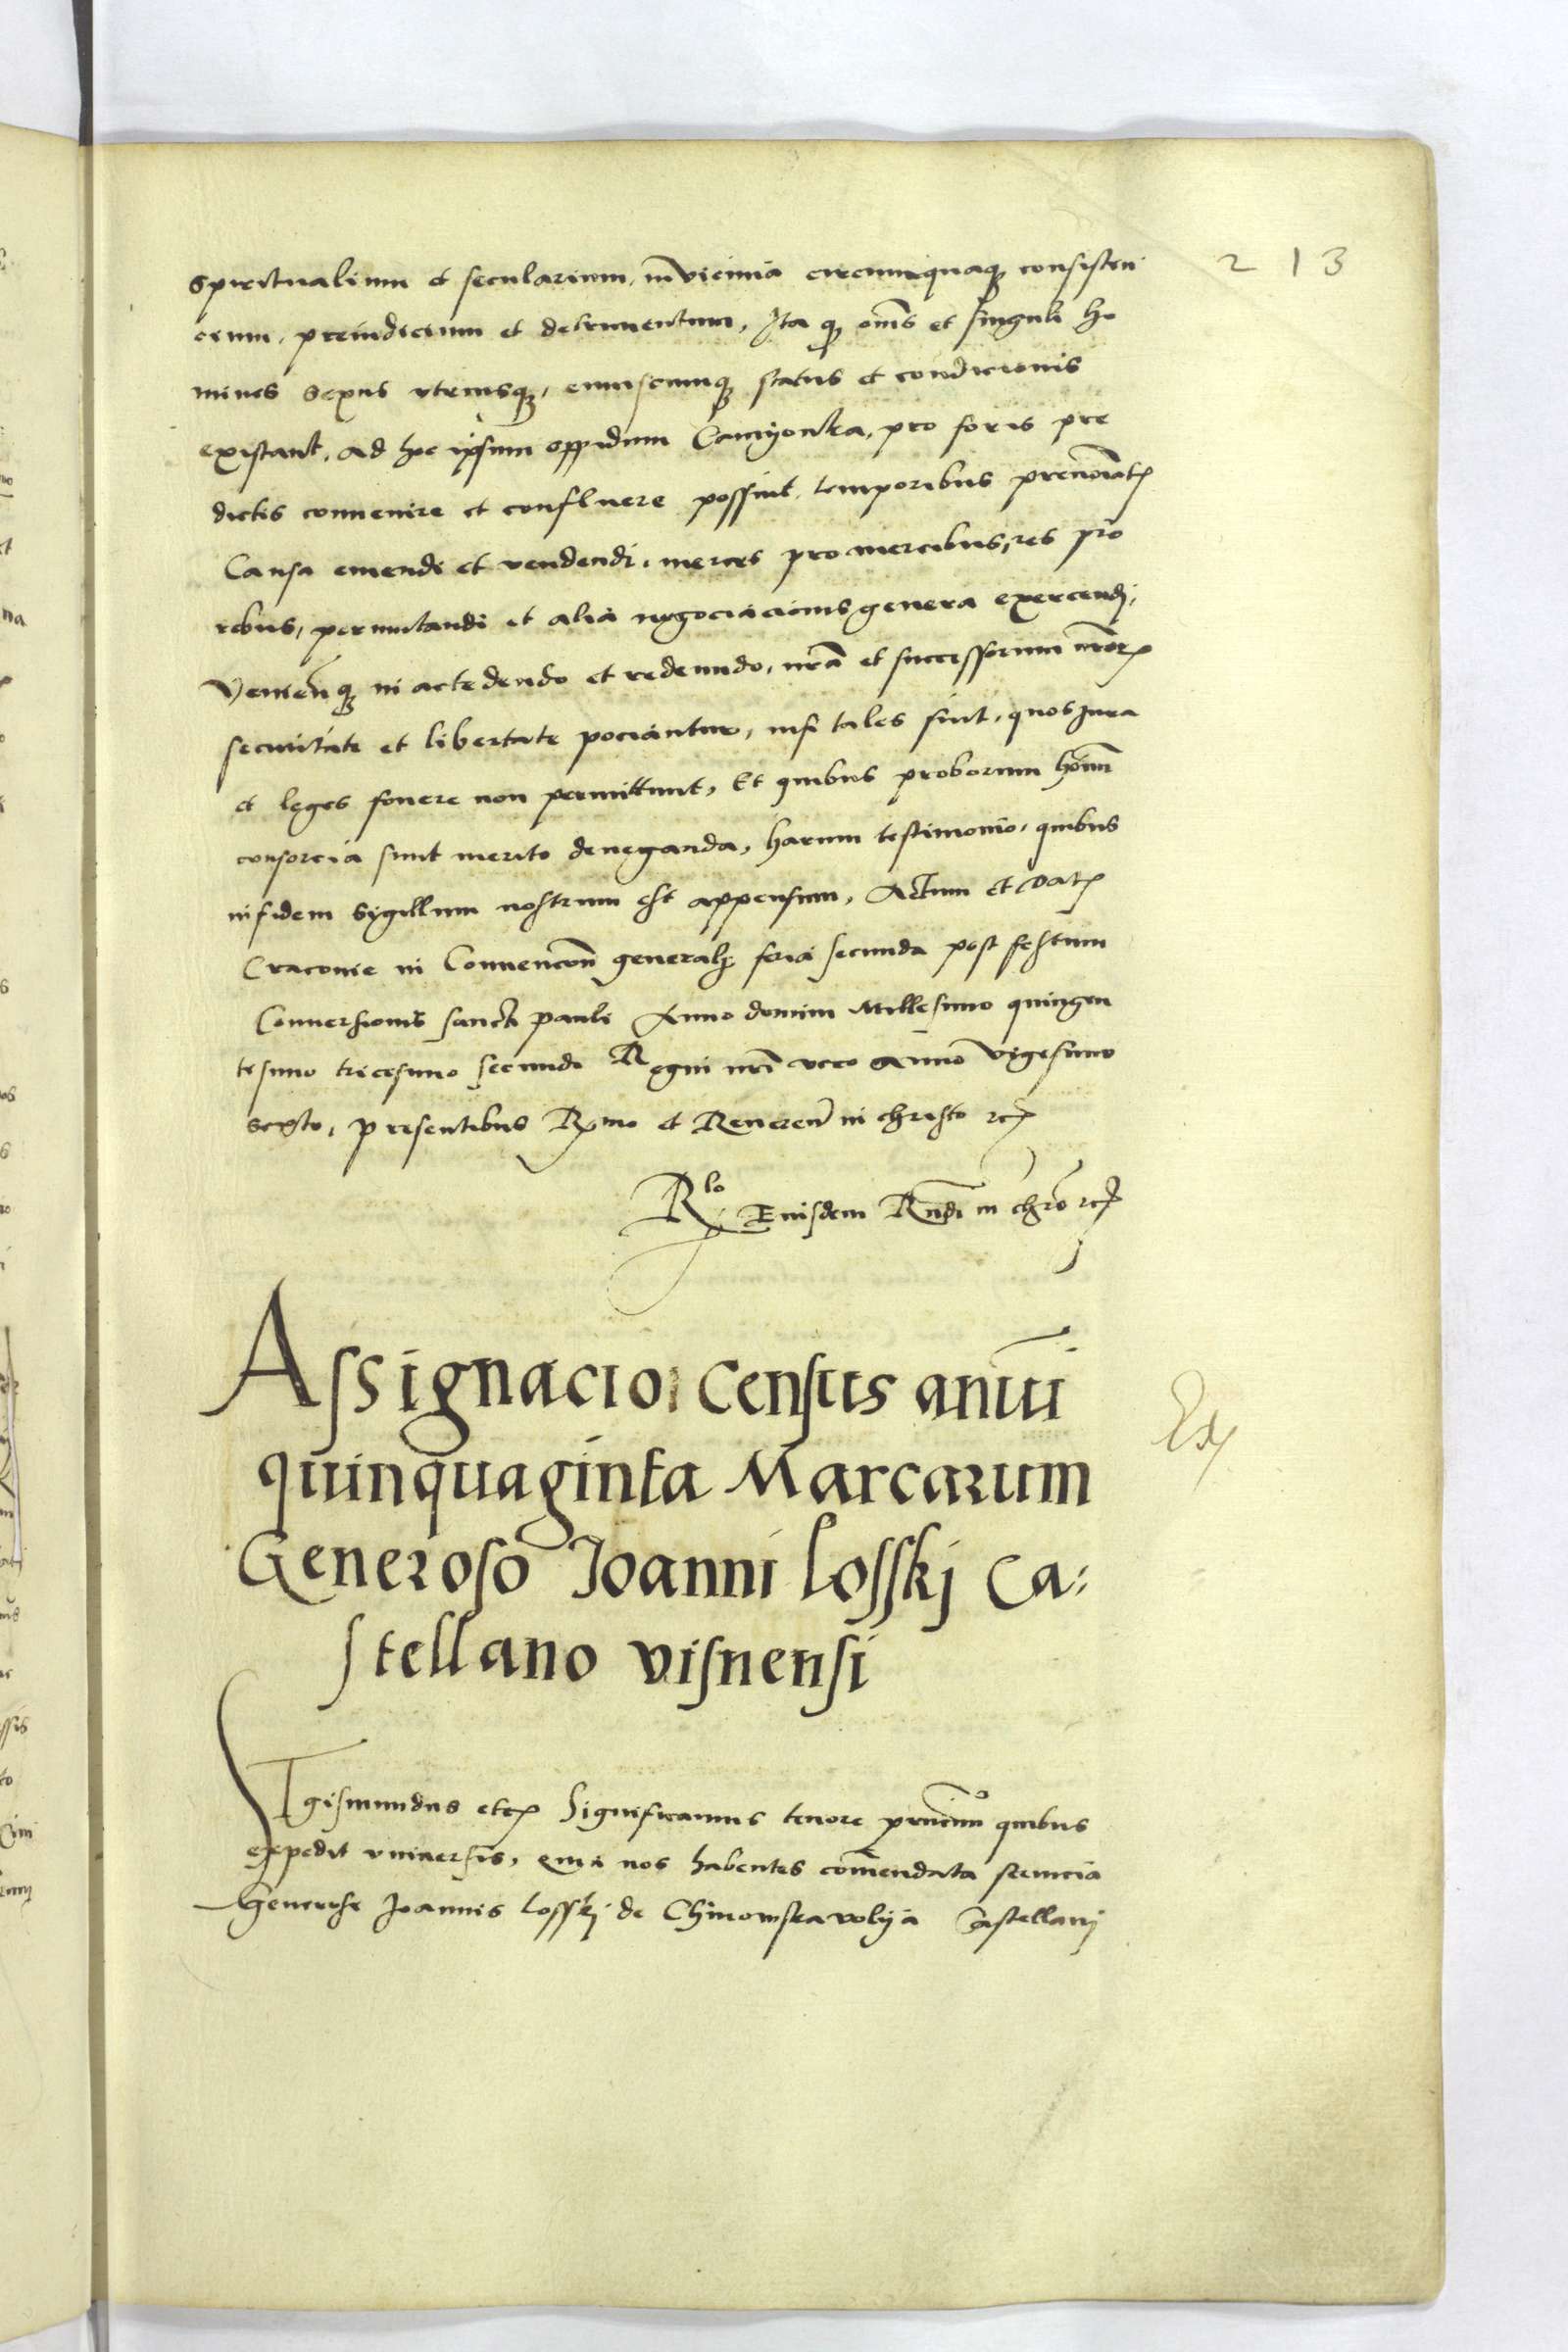 213
spiritualium et secularium, in vicinia circumquaque consisten
cium, preiudicium et detrimentum, Ita qͫ om̄s et singuli ho
mines sexus vtriusqꝫ, cuiuscumqꝫ status et condicionis
existant, ad hoc ipsum oppidum Camyonka, pro foris pre
dictis conuenire et confluere possint, temporibus prenōīatꝭ
Causa emendi et vendendi, merces pro mercibus, res pro
rebus, permutandi et alia negociacionis genera exercendj,
Venien̄qꝫ in accedendo et redeundo, nr̄a et successorum nr̄orꝭ
securitate et libertate pociantur, nisi tales sint, quos Jura
et leges fouere non permittunt, Et quibus proborum hōīm
consorcia sunt merito deneganda, harum testimonio, quibus
in fidem sygillum nostrum est appensum, Actum et Datꝭ
Cracouie in Conuencōn̄ generalj feria secunda post festum
Conuersionis sancti pauli Anno domini Millesimo quingen
tesimo tricesimo secundo Regni nr̄i vero Anno vigesimo
sexto, presentibus Rꝭmo et Reueren̄ in christo rcꝭ
Rlo Eiusdem Rn̄di in chr̄o rcꝭ
Assignacio Census an̄ui
quinquaginta Marcarum
Generoso Joanni Losskj Ca⸗
stellano visnensi
Ex
Sigismundus etcꝭ Significamus tenore pn̄cium quibus
expedit vniuersis, quia nos habentes com̄endata seruicia
Generosi Joannis Losskj de Chinowskawolya Castellanj